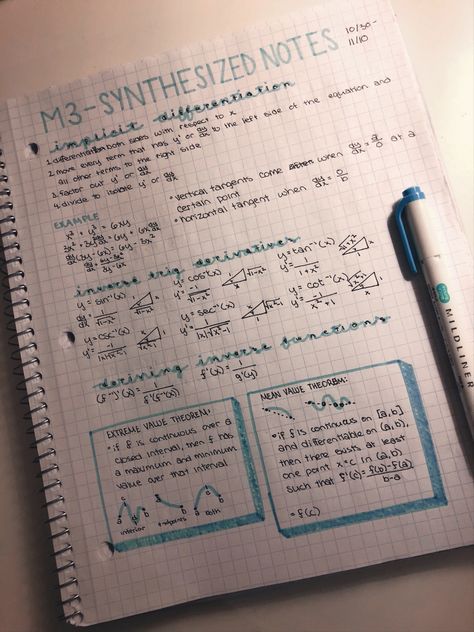 M3-SYNTHESIZED NOTES
10/30-
11/10
implicit differentiation
1. differentiate both sides with respect to x
2. move every term that has y' or dy/dx to the left side of the equation and
all other terms to the right side
3. factor out y' or dy/dx
4. divide to isolate y' or dy/dx
• vertical tangents come when dy/dx = a/0 at a
certain point
• horizontal tangent when dy/dx = 0/b
EXAMPLE
x³ + y³ = 6xy
3x² + 3y² dy/dx = 6y + 6x dy/dx
inverse trig derivatives
y = sin⁻¹(x)
y' = 1/√1-x²
y = cos⁻¹(x)
y' = -1/√1-x²
y = tan⁻¹(x)
y' = 1/1+x²
y = csc⁻¹(x)
y' = -1/|x|√x²-1
y = sec⁻¹(x)
y' = 1/|x|√x²-1
y = cot⁻¹(x)
y' = -1/x²+1
deriving inverse functions
(f⁻¹)'(x) = 1/f'(f⁻¹(x))
f'(x) = 1/g'(y)
EXTREME VALUE THEOREM:
• if f is continuous over a
closed interval, then f has
a maximum and minimum
value over that interval
interior
endpoints
both
MEAN VALUE THEOREM:
• if f is continuous on [a,b]
and differentiable on (a,b),
then there exists at least
one point x=c in (a,b)
such that f'(c) = f(b)-f(a)/b-a
= f(c)
MILDLINER